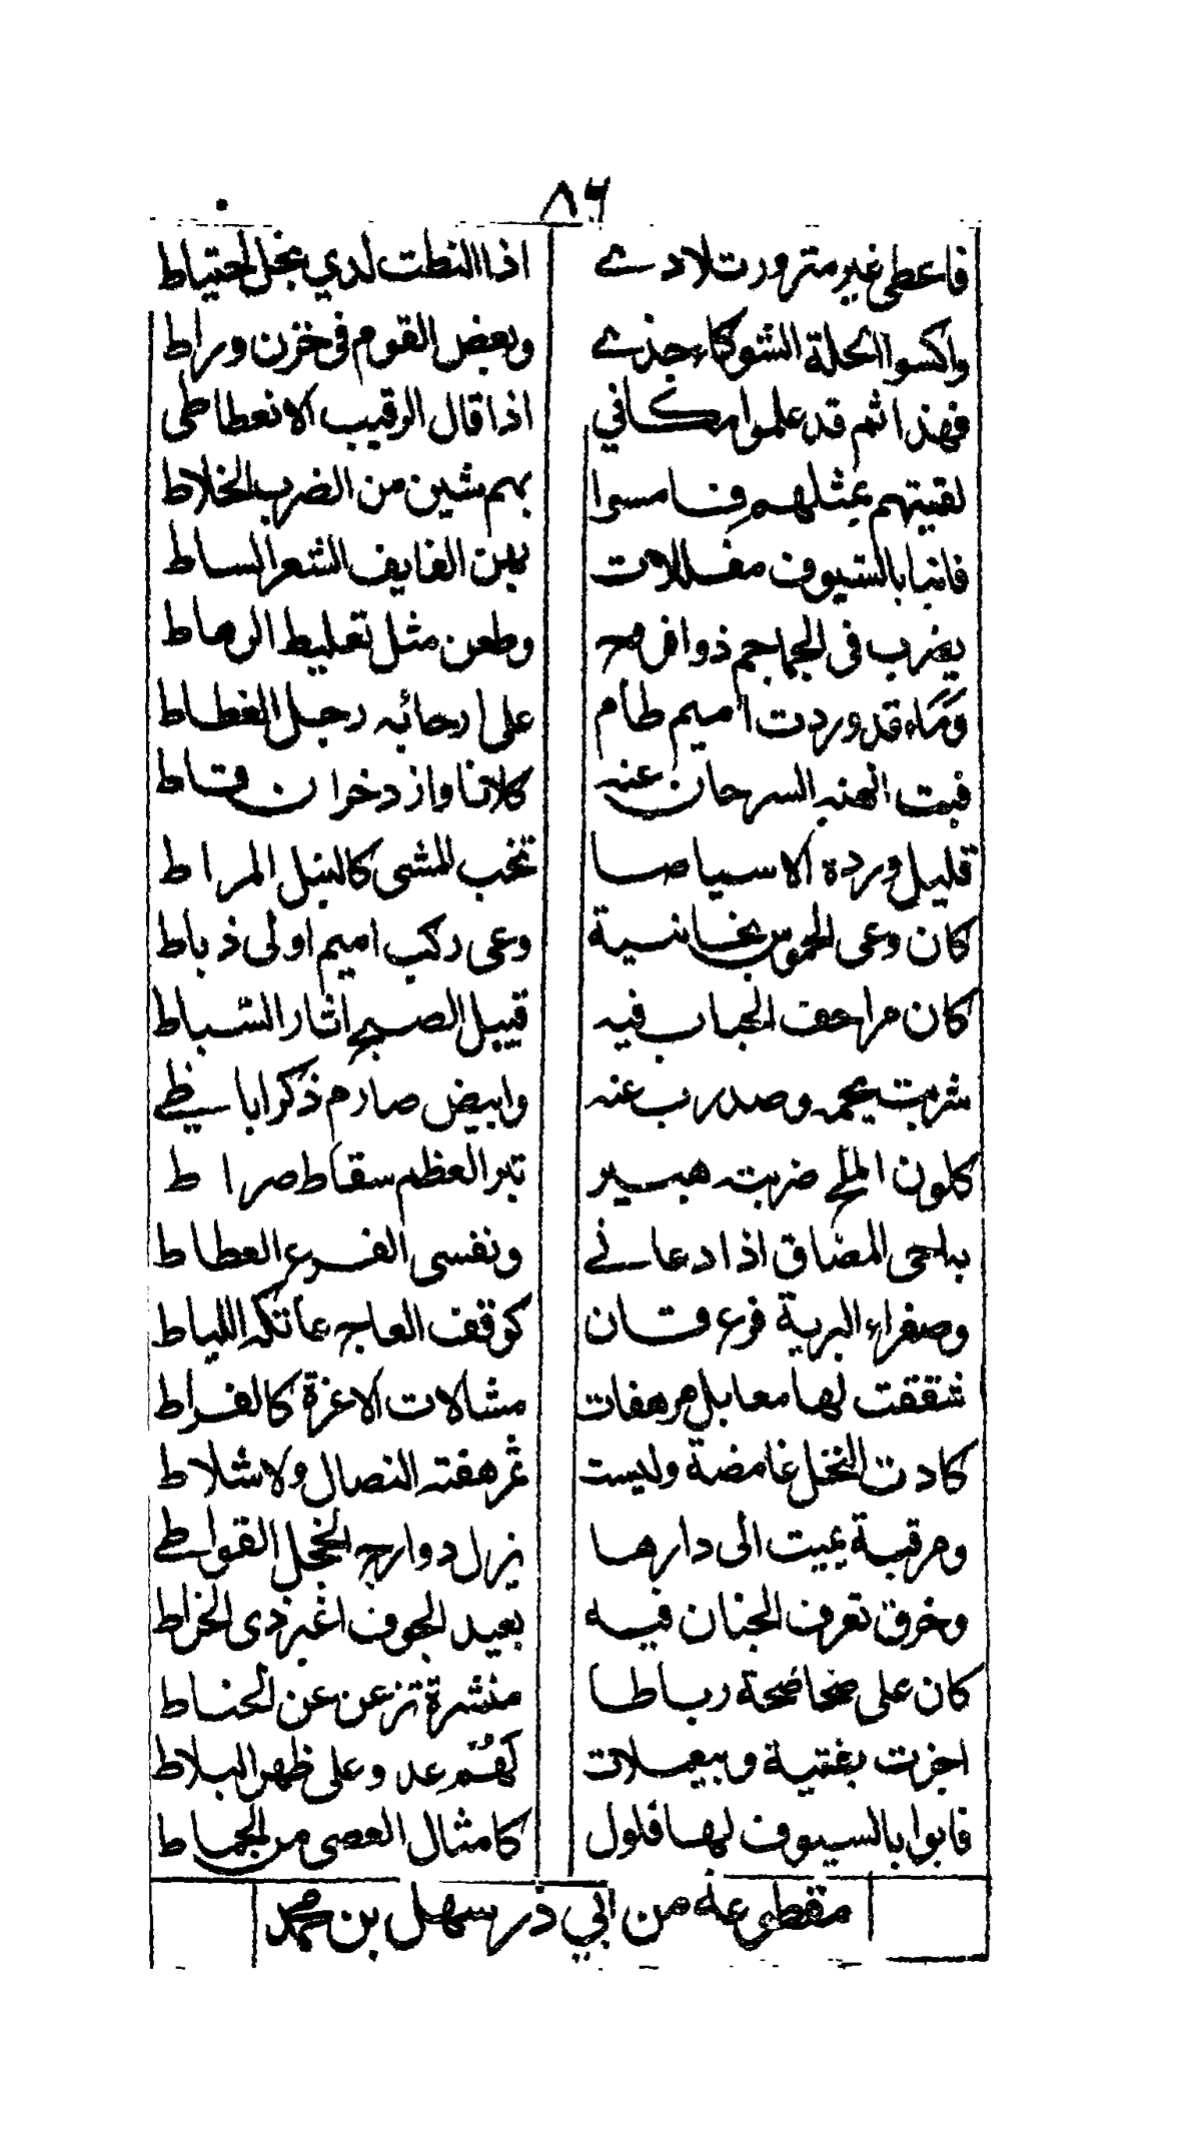 ٨٦
فاعطى غير متزور تلادى اذا التطت لدي بخل لحتياط
واكسوا الحلة الشوكاء خدنى وبعض القوم فى خزن وراط
فهذا ثم قد علموا مكاني اذا قال الرقيب الا نعطاطى
لقيتهم بمثلهم فامسوا بهم شين من الضرب الخلاط
فانبنا بالسيوف مفللات بهن الفايف الشعر الساط
بضرب فى الجماجم ذوافر وطعن مثل تعليط الرهاط
وماء قد وردت اميم طام على ارجائه رجل الغطاط
فبت انهنه السرحان عنه كلانا وازد خران قتاط
قليل وردة الا سياصا تخب للمشى كالنبل المراط
كان وعى الخموش بخانسية وعى ركب اميم اولى ذباط
كان مزاحف الجباب فيه قبيل الصبح اثار السباط
شربت بجمه وصدرت عنه وابيض صارم ذكر اباطى
كلون الملح ضربته هبير تبر العظم سقاط صراط
به احمى المضاق اذا دعانى ونفسى الفزع العطاط
وصفراء البرية فرع قان كوقف العاج عاتكه اللياط
شققت لها معابل مرهفات مشالات الاغزة كالقراط
كادت النخل غامضة وليست بمرهفته النصال ولا شلاط
ومرقبة يميت الى دارها يزل دوارج الخجل القواطى
وخرق تعرف الجنان فيه بعيد الجوف اغبر ذى الخراط
كان على ضحاضحة رباطا منشرة تزعن عن الحناط
اجزت بفتية وبيعملات كهم عد وعلى ظهر البلاط
فابوا بالسيوف لها فلول كامثال العصى من الجماط
مقطوعه من ابي ذر سهل بن محمد